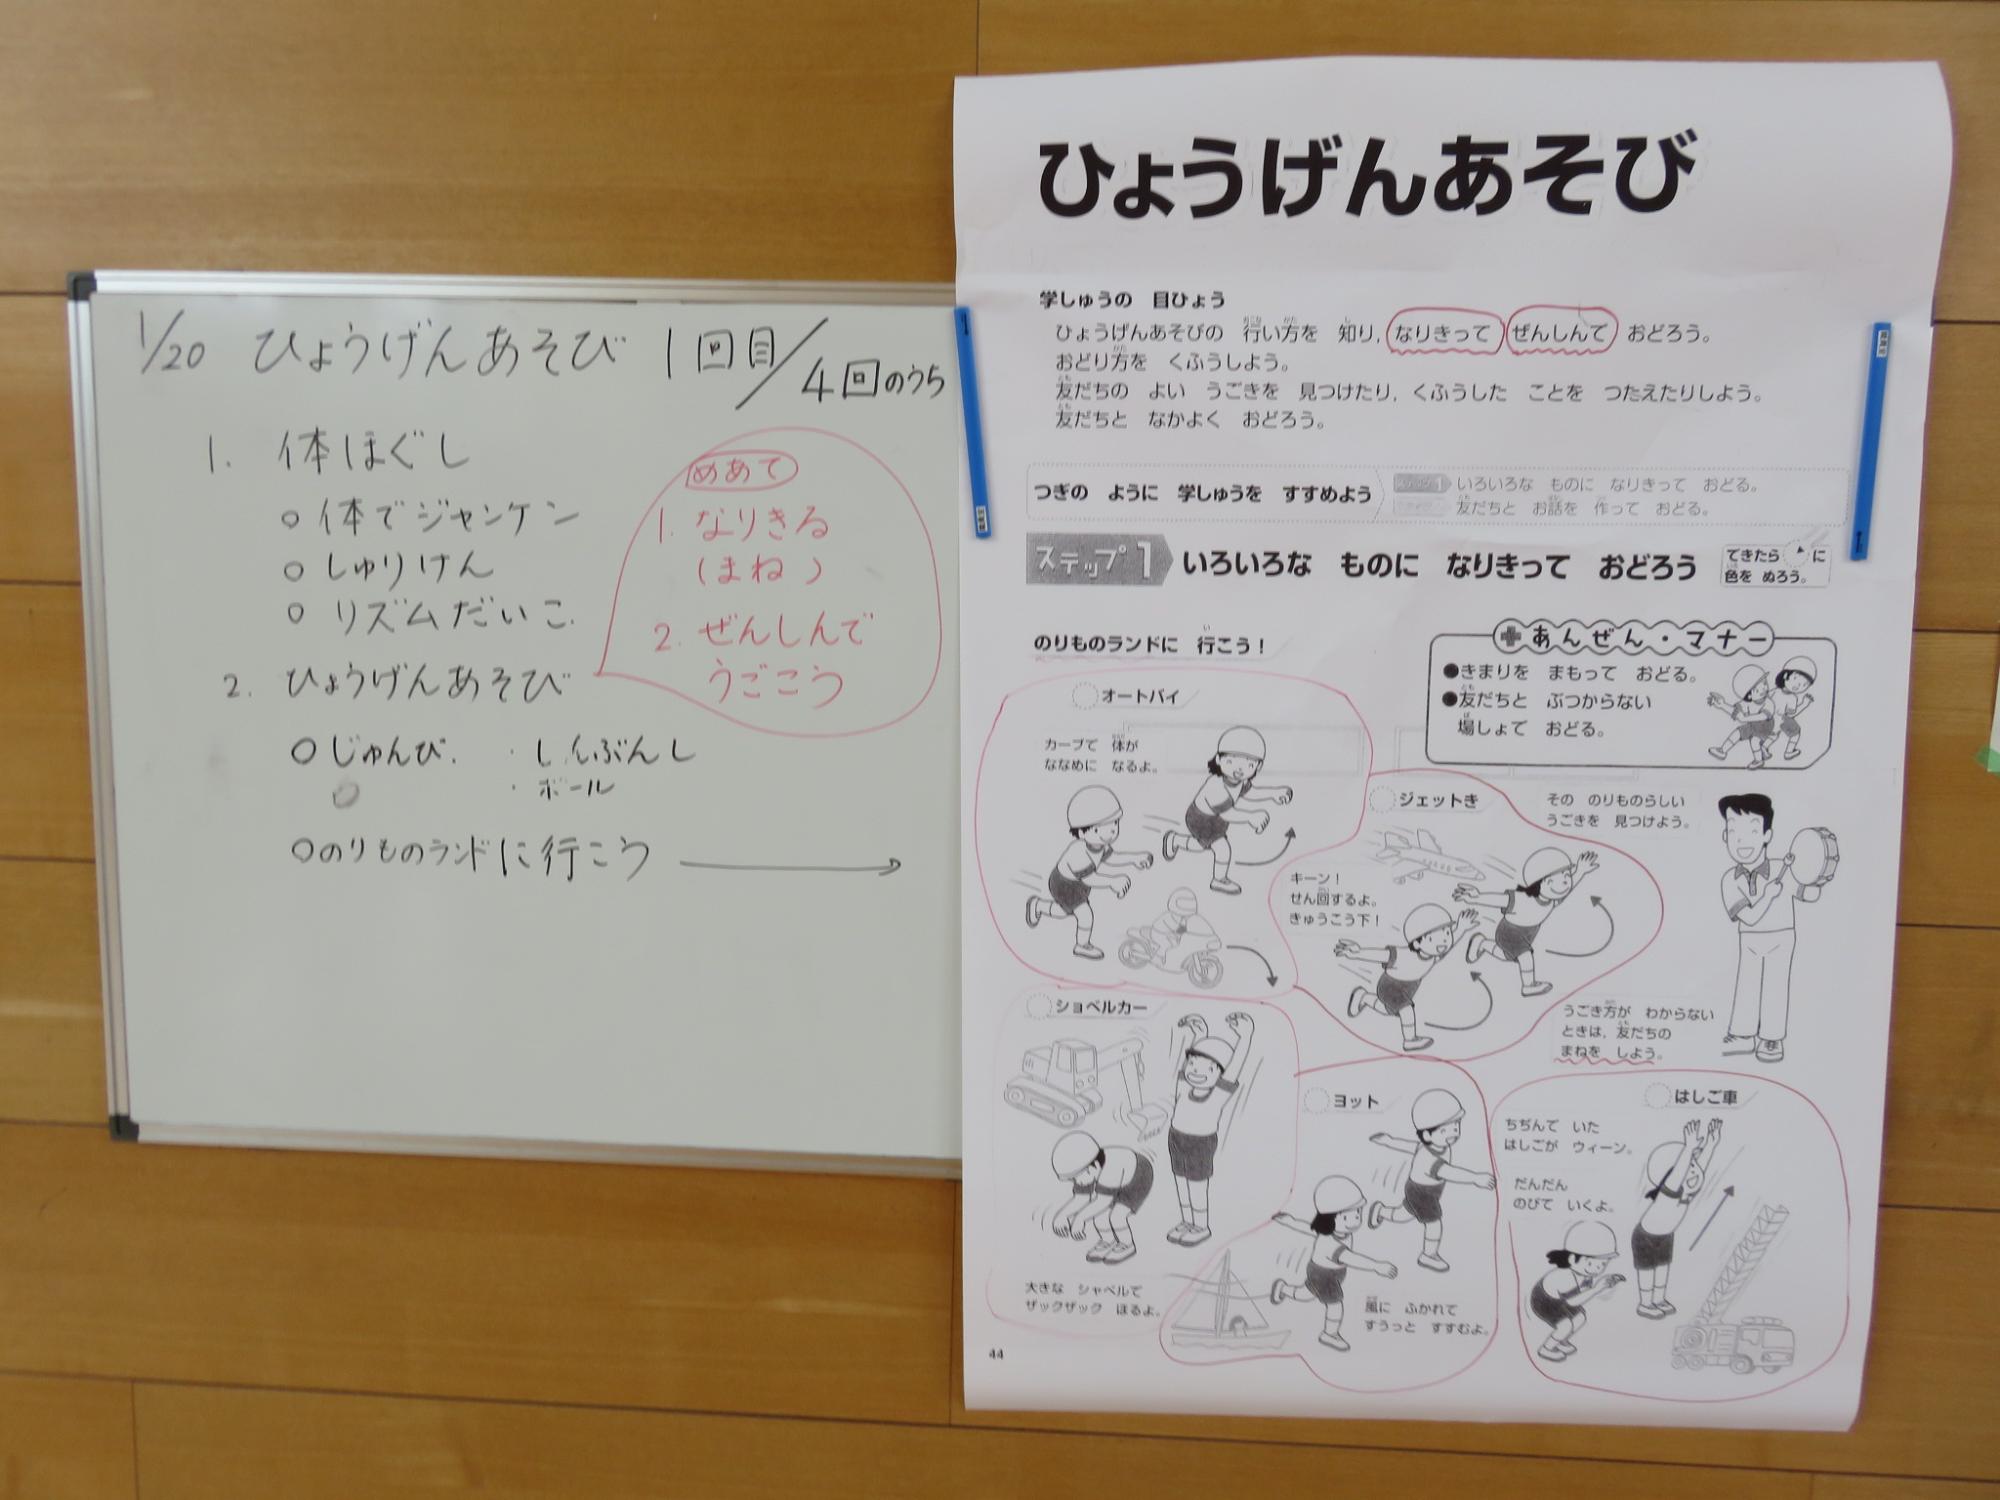 1/20 ひょうげんあそび 1回目/4回のうち
1. 体ほぐし
○体でジャンケン
○しゅりけん
○リズムだいこ
2. ひょうげんあそび
○じゅんび. ・しんぶんし
・ボール
○のりものランドに行こう
めあて
1. なりきる
(まね)
2. ぜんしんで
うごこう
ひょうげんあそび
学しゅうの 目ひょう
ひょうげんあそびの 行い方を 知り, なりきって ぜんしんで おどろう。
おどり方を くふうしよう。
友だちの よい うごきを 見つけたり, くふうした ことを つたえたりしよう。
友だちと なかよく おどろう。
つぎの ように 学しゅうを すすめよう
ステップ1 いろいろな ものに なりきって おどる。
友だちと お話を 作って おどる。
ステップ1 いろいろな ものに なりきって おどろう
できたら に
色を ぬろう。
のりものランドに 行こう!
あんぜん・マナー
●きまりを まもって おどる。
●友だちと ぶつからない
場しょで おどる。
オートバイ
カーブで 体が
ななめに なるよ。
ジェットき
キーン!
せん回するよ。
きゅうこう下!
その のりものらしい
うごきを 見つけよう。
うごき方が わからない
ときは, 友だちの
まねを しよう。
ショベルカー
大きな シャベルで
ザックザック ほるよ。
ヨット
風に ふかれて
すうっと すすむよ。
はしご車
ちぢんで いた
はしごが ウィーン。
だんだん
のびて いくよ。
44